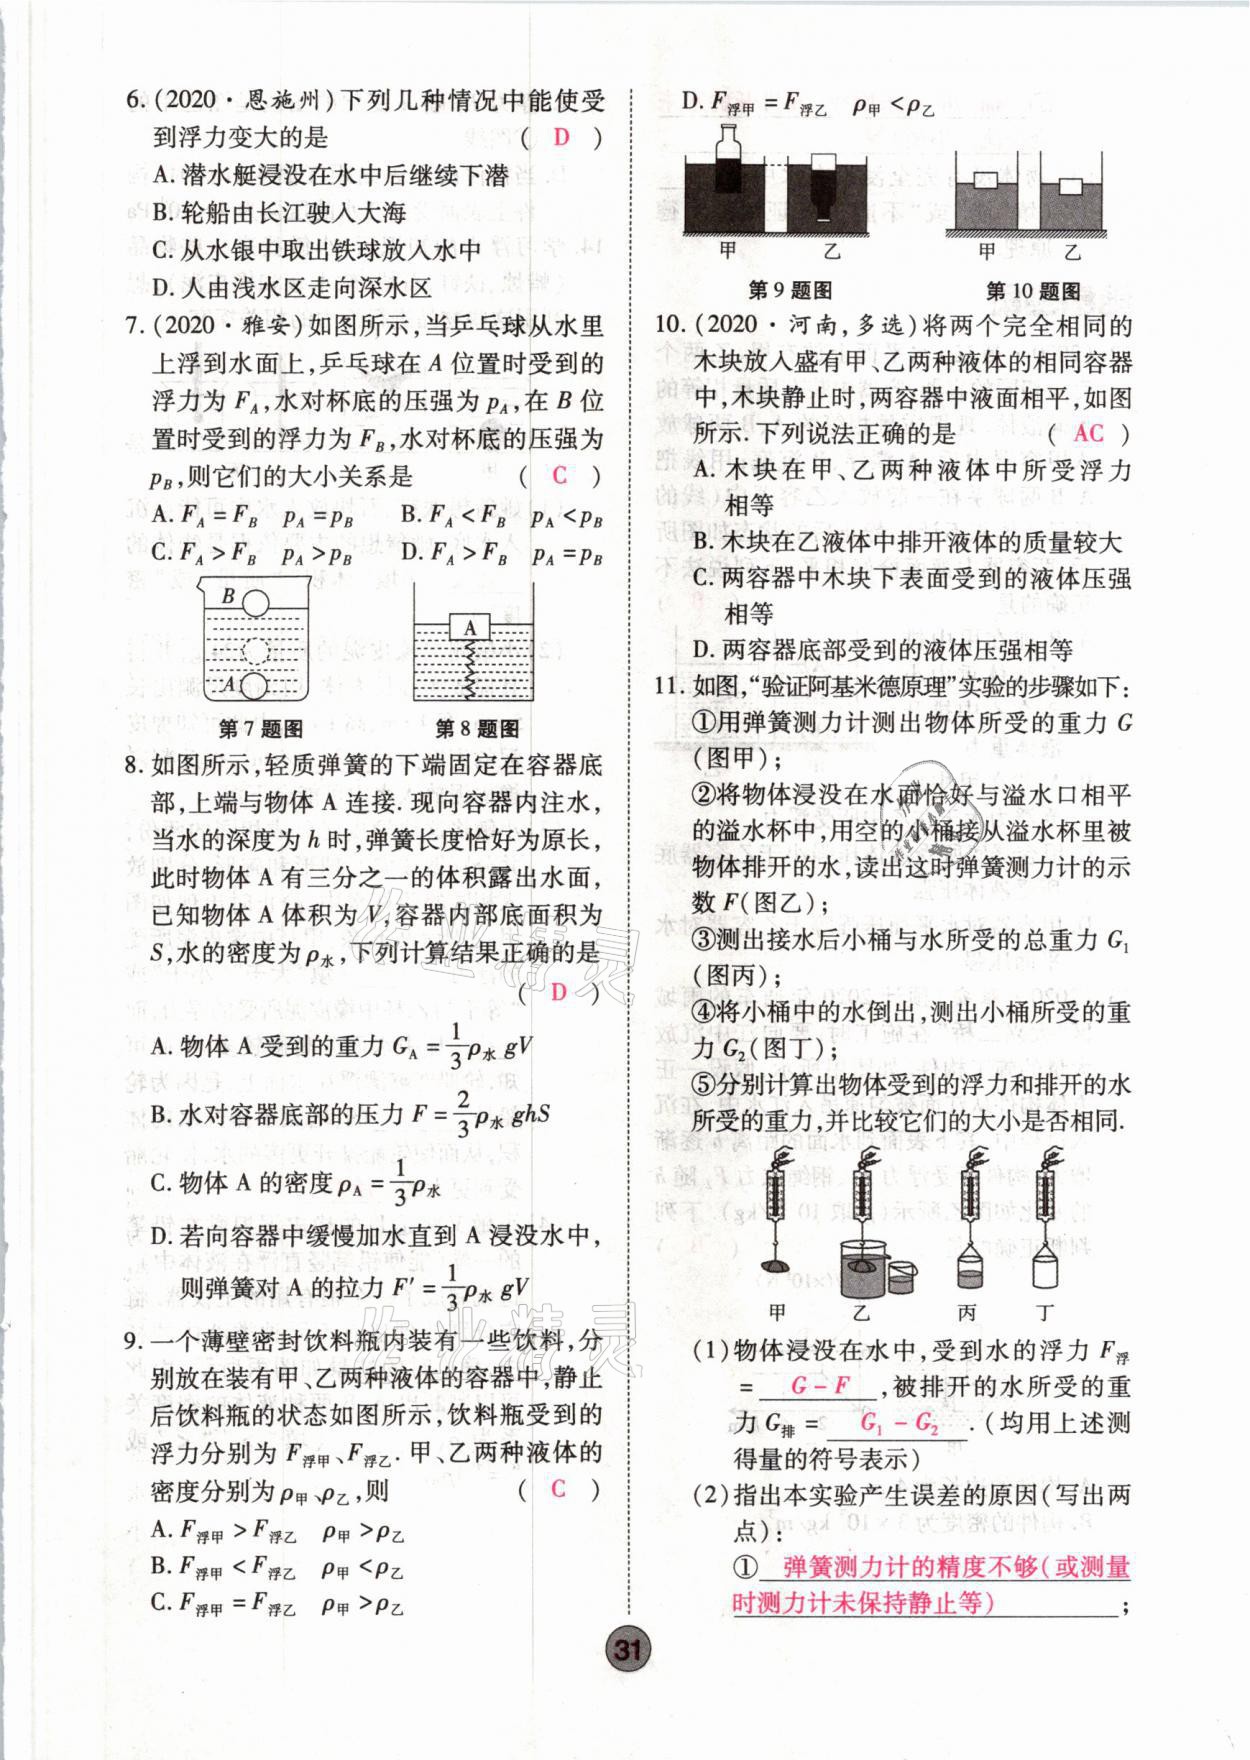 6. (2020·恩施州)下列几种情况中能使受
到浮力变大的是 ( D )
A. 潜水艇浸没在水中后继续下潜
B. 轮船由长江驶入大海
C. 从水银中取出铁球放入水中
D. 人由浅水区走向深水区
7. (2020·雅安)如图所示,当乒乓球从水里
上浮到水面上,乒乓球在 A 位置时受到的
浮力为 F_A,水对杯底的压强为 p_A,在 B 位
置时受到的浮力为 F_B,水对杯底的压强为
p_B,则它们的大小关系是 ( C )
A. F_A = F_B p_A = p_B B. F_A < F_B p_A < p_B
C. F_A > F_B p_A > p_B D. F_A > F_B p_A = p_B
B
A
A
第 7 题图 第 8 题图
8. 如图所示,轻质弹簧的下端固定在容器底
部,上端与物体 A 连接. 现向容器内注水,
当水的深度为 h 时,弹簧长度恰好为原长,
此时物体 A 有三分之一的体积露出水面,
已知物体 A 体积为 V,容器内部底面积为
S,水的密度为 ρ水,下列计算结果正确的是
( D )
A. 物体 A 受到的重力 G_A = 1/3 ρ水 gV
B. 水对容器底部的压力 F = 2/3 ρ水 ghS
C. 物体 A 的密度 ρ_A = 1/3 ρ水
D. 若向容器中缓慢加水直到 A 浸没水中,
则弹簧对 A 的拉力 F′ = 1/3 ρ水 gV
9. 一个薄壁密封饮料瓶内装有一些饮料,分
别放在装有甲、乙两种液体的容器中,静止
后饮料瓶的状态如图所示,饮料瓶受到的
浮力分别为 F浮甲、F浮乙. 甲、乙两种液体的
密度分别为 ρ甲、ρ乙,则 ( C )
A. F浮甲 > F浮乙 ρ甲 > ρ乙
B. F浮甲 < F浮乙 ρ甲 < ρ乙
C. F浮甲 = F浮乙 ρ甲 > ρ乙
D. F浮甲 = F浮乙 ρ甲 < ρ乙
甲 乙 甲 乙
第 9 题图 第 10 题图
10. (2020·河南,多选)将两个完全相同的
木块放入盛有甲、乙两种液体的相同容器
中,木块静止时,两容器中液面相平,如图
所示. 下列说法正确的是 ( AC )
A. 木块在甲、乙两种液体中所受浮力
相等
B. 木块在乙液体中排开液体的质量较大
C. 两容器中木块下表面受到的液体压强
相等
D. 两容器底部受到的液体压强相等
11. 如图,“验证阿基米德原理”实验的步骤如下:
①用弹簧测力计测出物体所受的重力 G
(图甲);
②将物体浸没在水面恰好与溢水口相平
的溢水杯中,用空的小桶接从溢水杯里被
物体排开的水,读出这时弹簧测力计的示
数 F(图乙);
③测出接水后小桶与水所受的总重力 G₁
(图丙);
④将小桶中的水倒出,测出小桶所受的重
力 G₂(图丁);
⑤分别计算出物体受到的浮力和排开的水
所受的重力,并比较它们的大小是否相同.
甲 乙 丙 丁
(1)物体浸没在水中,受到水的浮力 F浮
= G − F ,被排开的水所受的重
力 G排 = G₁ − G₂ .(均用上述测
得量的符号表示)
(2)指出本实验产生误差的原因(写出两
点):
① 弹簧测力计的精度不够(或测量
时测力计未保持静止等) ;
31
作业精灵
作业精灵